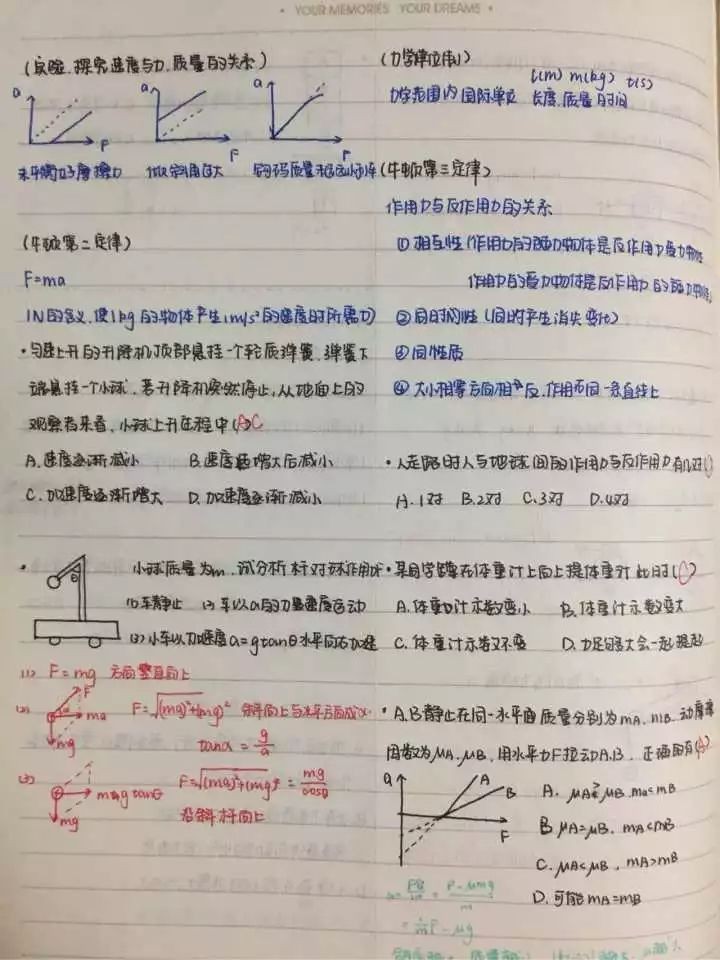 • YOUR MEMORIES YOUR DREAMS •
(实验.探究速度与力.质量的关系)
a
F
a
F
a
F
未平衡好摩擦力
倾斜角过大
钩码质量
(牛顿第二定律)
F=ma
1N的含义.使1kg的物体产生1m/s²的速度时所需力)
•匀速上升的升降机顶部悬挂一个轻质弹簧.弹簧下
端悬挂一个小球.若升降机突然停止,从地面上的
观察者来看,小球上升过程中(A)C
A.速度逐渐减小 B.速度增大后减小
C.加速度逐渐增大 D.加速度逐渐减小
• 小球质量为m.试分析杆对球作用
θ
(1)车静止 (2)车以a的加速度运动
(3)小车以加速度a=gtanθ水平向右加速
(1) F=mg 方向竖直向上
(2) F ma mg
F=√(ma)²+(mg)² 斜向上与水平方向成α
tanα=g/a
(3) gtanθ mg
F=√(ma)²+(mg)²=mg/cosθ
沿斜杆向上
(力学单位制)
l(m) m(kg) t(s)
力学范围内国际单位 长度.质量.时间
(牛顿第三定律)
作用力与反作用力的关系
①相互性(作用力的施力物体是反作用力受力物体
作用力的受力物体是反作用力的施力物体)
②同时性(同时产生消失变化)
③同性质
④大小相等方向相反.作用在同一条直线上
•人走路时人与地球间的作用力与反作用力有几对()
A.1对 B.2对 C.3对 D.4对
•某同学站在体重计上向上提体重计 此时(C)
A.体重计示数变小 B.体重计示数变大
C.体重计示数不变 D.力足够大会一起提起
•A.B静止在同一水平面 质量分别为mA.mB.动摩擦
因数为μA.μB.用水平力F拉动A.B. 正确的有(A)
a
A
B
F
A. μA μB.mA<mB
B.μA=μB. mA<mB
C.μA<μB. mA>mB
D.可能mA=mB
= F-μmg/m
=1/m F-μg